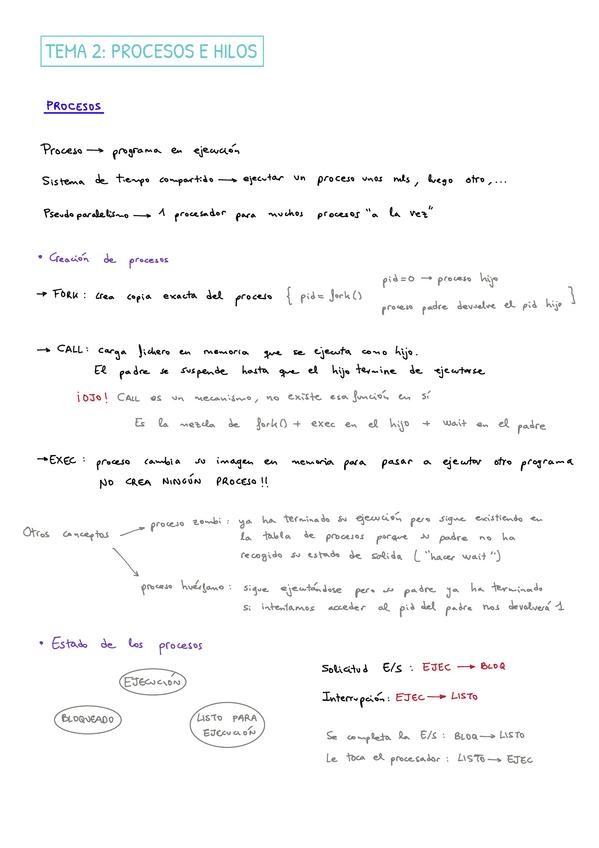 TEMA 2: PROCESOS E HILOS
PROCESOS
Proceso → programa en ejecución
Sistema de tiempo compartido → ejecutar un proceso unos mls, luego otro,...
Pseudoparalelismo → 1 procesador para muchos procesos "a la vez"
• Creación de procesos
→ FORK: crea copia exacta del proceso { pid = fork()
pid=0 → proceso hijo
proceso padre devuelve el pid hijo }
→ CALL: carga fichero en memoria que se ejecuta como hijo.
El padre se suspende hasta que el hijo termine de ejecutarse
¡OJO! CALL es un mecanismo, no existe esa función en sí
Es la mezcla de fork() + exec en el hijo + wait en el padre
→ EXEC: proceso cambia su imagen en memoria para pasar a ejecutar otro programa
NO CREA NINGÚN PROCESO!!
Otros conceptos
proceso zombi: ya ha terminado su ejecución pero sigue existiendo en
la tabla de procesos porque su padre no ha
recogido su estado de salida ("hacer wait")
proceso huérfano: sigue ejecutándose pero su padre ya ha terminado
si intentamos acceder al pid del padre nos devolverá 1
• Estado de los procesos
EJECUCIÓN
BLOQUEADO
LISTO PARA
EJECUCIÓN
Solicitud E/S: EJEC → BLOQ
Interrupción: EJEC → LISTO
Se completa la E/S: BLOQ → LISTO
Le toca el procesador: LISTO → EJEC